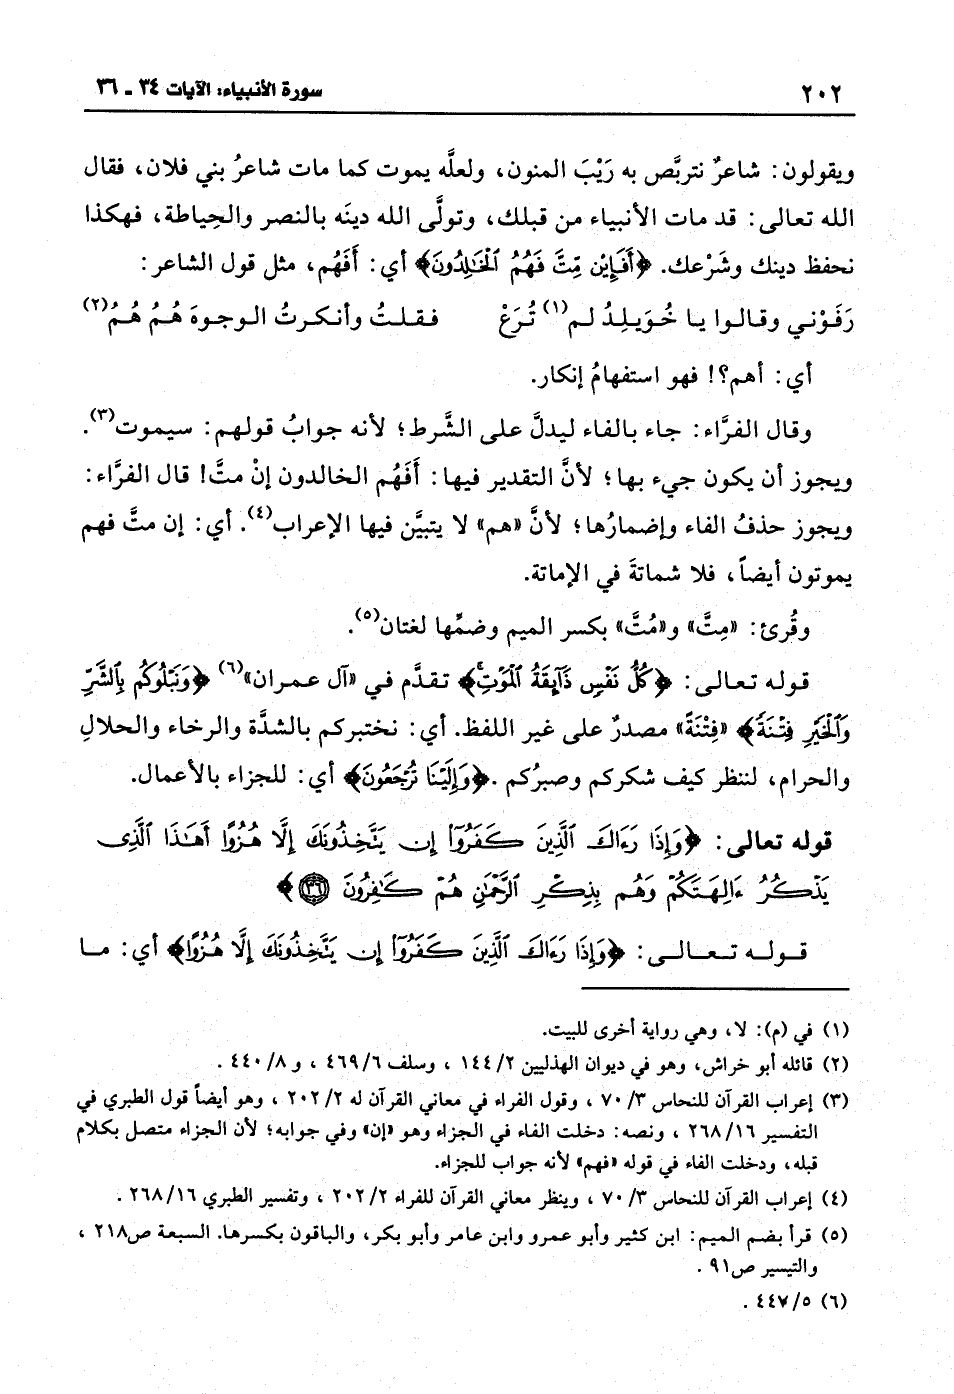 ٢٠٢ سورة الأنبياء: الآيات ٣٤ - ٣٦
ويقولون: شاعرٌ نتربَّص به رَيْبَ المنون، ولعلَّه يموت كما مات شاعرُ بني فلان، فقال
الله تعالى: قد مات الأنبياء من قبلك، وتولَّى الله دينَه بالنصر والحِياطة، فهكذا
نحفظ دينك وشَرْعك. ﴿أَفَإِيْن مِّتَّ فَهُمُ ٱلْخَٰلِدُونَ﴾ أي: أَفَهُم، مثل قول الشاعر:
رَفَوْني وقالوا يا خُوَيلِدُ لم(١) تُرَعْ فقلتُ وأنكرتُ الوجوهَ هُمُ هُمُ(٢)
أي: أهم؟! فهو استفهامُ إنكار.
وقال الفرَّاء: جاء بالفاء ليدلَّ على الشَّرط؛ لأنه جوابُ قولهم: سيموت(٣).
ويجوز أن يكون جيء بها؛ لأنَّ التقدير فيها: أَفَهُم الخالدون إنْ متَّ! قال الفرَّاء:
ويجوز حذفُ الفاء وإضمارُها؛ لأنَّ «هم» لا يتبيَّن فيها الإعراب(٤). أي: إن متَّ فهم
يموتون أيضاً، فلا شماتةَ في الإماتة.
وقُرئ: «مِتَّ» و«مُتَّ» بكسر الميم وضمِّها لغتان(٥).
قوله تعالى: ﴿كُلُّ نَفْسٍ ذَآئِقَةُ ٱلْمَوْتِ﴾ تقدَّم في «آل عمران»(٦) ﴿وَنَبْلُوكُم بِٱلشَّرِّ
وَٱلْخَيْرِ فِتْنَةً﴾ «فِتْنَةً» مصدرٌ على غير اللفظ. أي: نختبركم بالشدَّة والرخاء والحلالِ
والحرام، لننظر كيف شكركم وصبرُكم. ﴿وَإِلَيْنَا تُرْجَعُونَ﴾ أي: للجزاء بالأعمال.
قوله تعالى: ﴿وَإِذَا رَءَاكَ ٱلَّذِينَ كَفَرُوٓا۟ إِن يَتَّخِذُونَكَ إِلَّا هُزُوًا أَهَٰذَا ٱلَّذِى
يَذْكُرُ ءَالِهَتَكُمْ وَهُم بِذِكْرِ ٱلرَّحْمَٰنِ هُمْ كَٰفِرُونَ ٣٦﴾
قوله تعالى: ﴿وَإِذَا رَءَاكَ ٱلَّذِينَ كَفَرُوٓا۟ إِن يَتَّخِذُونَكَ إِلَّا هُزُوًا﴾ أي: ما
(١) في (م): لا، وهي رواية أخرى للبيت.
(٢) قائله أبو خراش، وهو في ديوان الهذليين ١٤٤/٢ ، وسلف ٤٦٩/٦ ، و ٤٤٠/٨ .
(٣) إعراب القرآن للنحاس ٧٠/٣ ، وقول الفراء في معاني القرآن له ٢٠٢/٢ ، وهو أيضاً قول الطبري في
التفسير ٢٦٨/١٦ ، ونصه: دخلت الفاء في الجزاء وهو «إن» وفي جوابه؛ لأن الجزاء متصل بكلام
قبله، ودخلت الفاء في قوله «فهم» لأنه جواب للجزاء.
(٤) إعراب القرآن للنحاس ٧٠/٣ ، وينظر معاني القرآن للفراء ٢٠٢/٢ ، وتفسير الطبري ٢٦٨/١٦ .
(٥) قرأ بضم الميم: ابن كثير وأبو عمرو وابن عامر وأبو بكر، والباقون بكسرها. السبعة ص٢١٨ ،
والتيسير ص٩١ .
(٦) ٤٤٧/٥ .